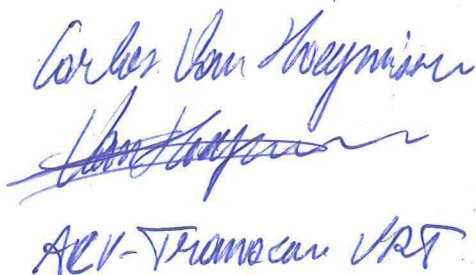 Carlos Van Hoeymissen
Van Hoeym
ACV-Transcom VRT